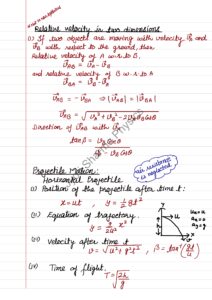 Relative velocity in two dimensions
(i) If two object are moving with velocity v⃗A and
v⃗B with respect to the ground, then
Relative velocity of A w·r·to B,
v⃗AB = v⃗A - v⃗B
and relative velocity of B w·r·to A
v⃗BA = v⃗B - v⃗A
v⃗AB = - v⃗BA ⇒ |v⃗AB| = |v⃗BA|
v⃗AB = √(vA² + vB² - 2vAvB Cosθ)
Direction of v⃗AB with v⃗A
tanβ =
Projectile Motion:
air resistance
is neglected
Horizontal Projectile
(i) Position of the projectile after time t:
x = ut , y = 1/2 gt²
(ii) Equation of trajectory
y = g/2u² x²
(iii) Velocity after time t
v = √(u² + g²t²) , β = tan⁻¹(gt/u)
(iv) Time of flight
T = √(2h/g)
ux = u
ax = 0